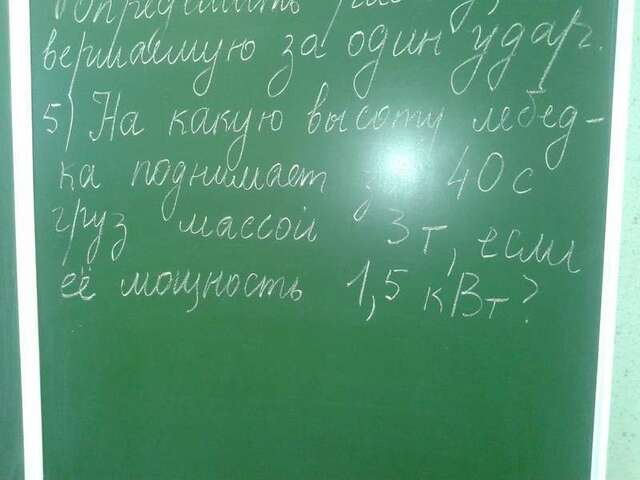 Определить
вершаемую за один удар.
5) На какую высоту лебед-
ка поднимает за 40 с
груз массой 3т, если
её мощность 1,5 кВт?